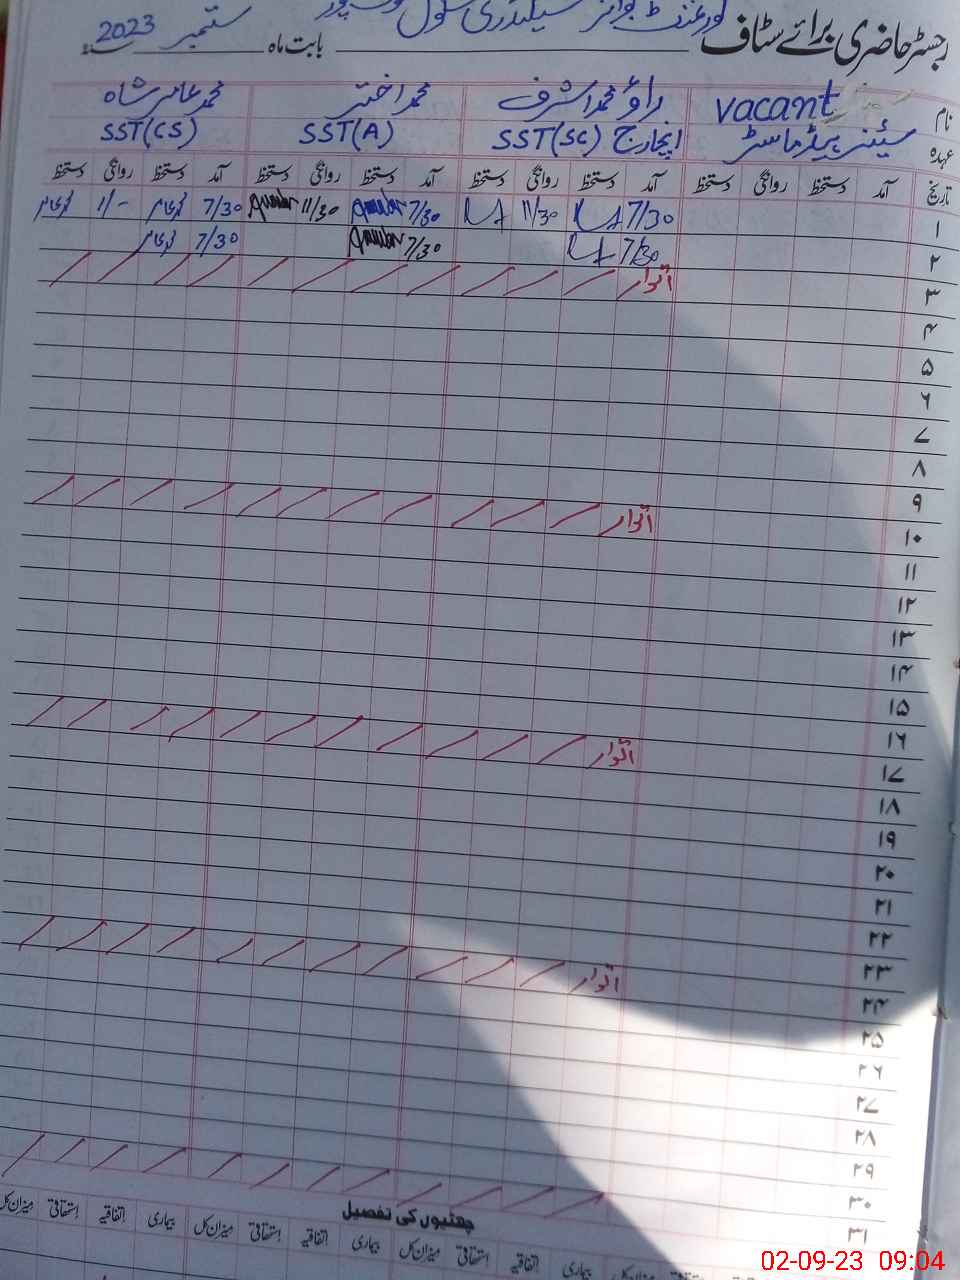 گورنمنٹ بوائز سیکنڈری سکول
رجسٹر حاضری برائے سٹاف بابت ماہ ستمبر سنہ 2023
نام vacant راؤ محمد اشرف محمد اختر محمد عامر شاہ
عہدہ سینئر ہیڈ ماسٹر انچارج SST(SC) SST(A) SST(CS)
تاریخ آمد دستخط روانگی دستخط آمد دستخط روانگی دستخط آمد دستخط روانگی دستخط آمد دستخط روانگی دستخط
۱ 7/30 11/30 7/30 11/30 7/30 1/-
۲ 7/30 7/30 7/30
۳ اتوار
۴
۵
۶
۷
۸
۹
۱۰ اتوار
۱۱
۱۲
۱۳
۱۴
۱۵
۱۶
۱۷ اتوار
۱۸
۱۹
۲۰
۲۱
۲۲
۲۳
۲۴ اتوار
۲۵
۲۶
۲۷
۲۸
۲۹
۳۰
۳۱
چھٹیوں کی تفصیل
بیماری اتفاقیہ استحقاقی میزان کل بیماری اتفاقیہ استحقاقی میزان کل بیماری اتفاقیہ استحقاقی میزان کل
02-09-23 09:04